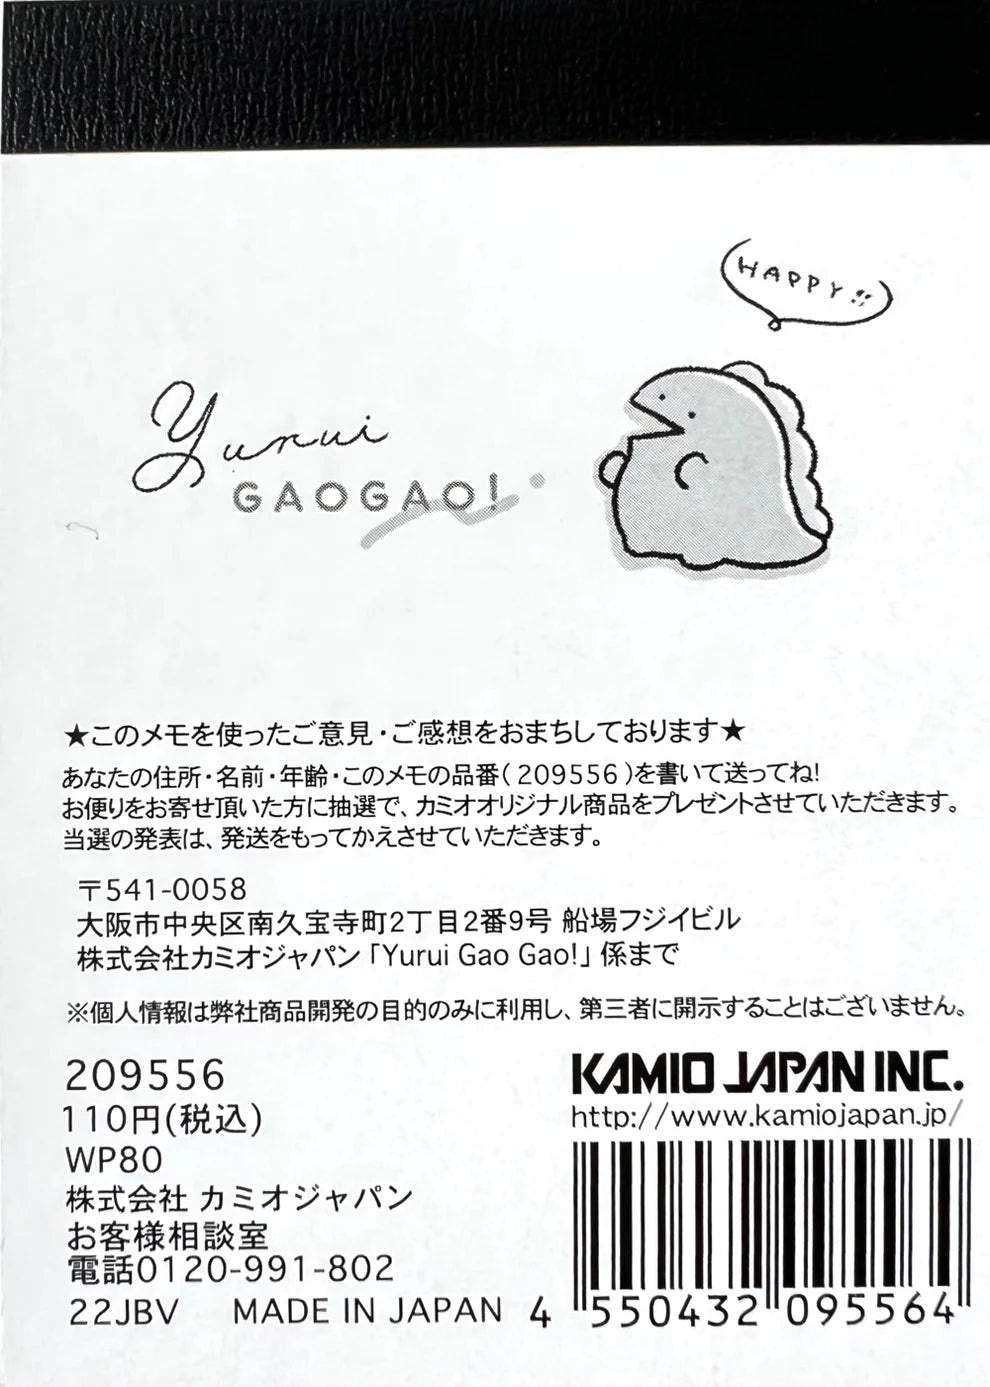 HAPPY!!
Yurui
GAOGAO!
★このメモを使ったご意見・ご感想をおまちしております★
あなたの住所・名前・年齢・このメモの品番(209556)を書いて送ってね!
お便りをお寄せ頂いた方に抽選で、カミオオリジナル商品をプレゼントさせていただきます。
当選の発表は、発送をもってかえさせていただきます。
〒541-0058
大阪市中央区南久宝寺町2丁目2番9号 船場フジイビル
株式会社カミオジャパン「Yurui Gao Gao!」係まで
※個人情報は弊社商品開発の目的のみに利用し、第三者に開示することはございません。
209556
110円(税込)
WP80
株式会社 カミオジャパン
お客様相談室
電話0120-991-802
22JBV MADE IN JAPAN
KAMIO JAPAN INC.
http://www.kamiojapan.jp/
4 550432 095564